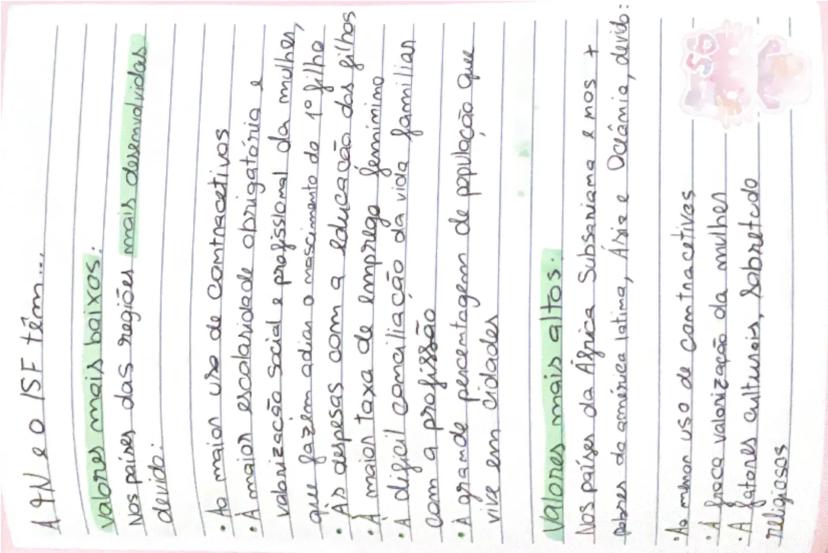 A TN e o ISF têm...
Valores mais baixos:
Nos países das regiões mais desenvolvidas
devido:
• Ao maior uso de contracetivos
• A maior escolaridade obrigatória e
valorização social e profissional da mulher,
que fazem adiar o nascimento do 1º filho
• As despesas com a educação dos filhos
• A maior taxa de emprego feminino
• A difícil conciliação da vida familiar
com a profissão
• A grande percentagem de população que
vive em cidades
Valores mais altos:
Nos países da África Subsariana e nos +
pobres da américa latina, Ásia e Oceânia, devido:
• Ao menor uso de contracetivas
• A fraca valorização da mulher
• A fatores culturais, sobretudo
religiosos